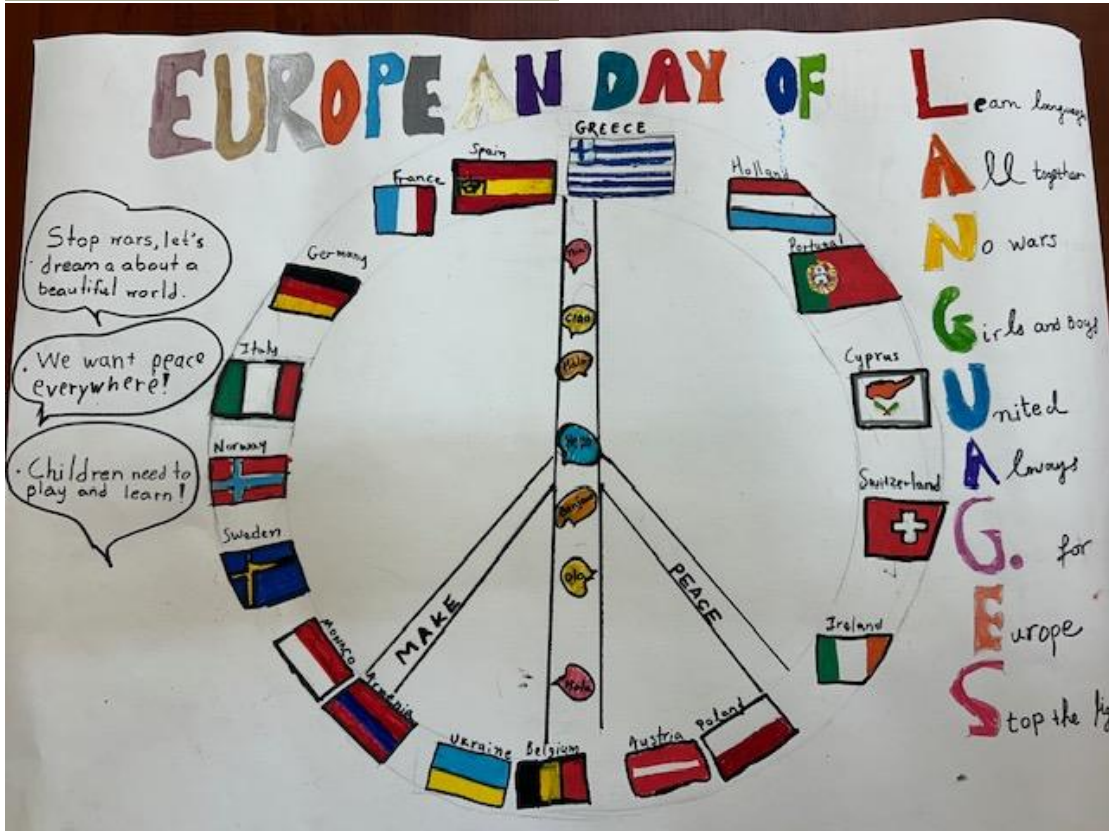 EUROPEAN DAY OF
Learn language
All together
No wars
Girls and Boys
United
Always
G. for
Europe
Stop the
Stop wars, let's
dream a about a
beautiful world.
. We want peace
everywhere!
. Children need to
play and learn!
GREECE
Spain
France
Germany
Italy
Norway
Sweden
Monaco
Armenia
Ukraine
Belgium
Austria
Poland
Ireland
Switzerland
Cyprus
Portugal
Holland
Ciao
Hello
Bonjour
Ola
Hola
MAKE
PEACE